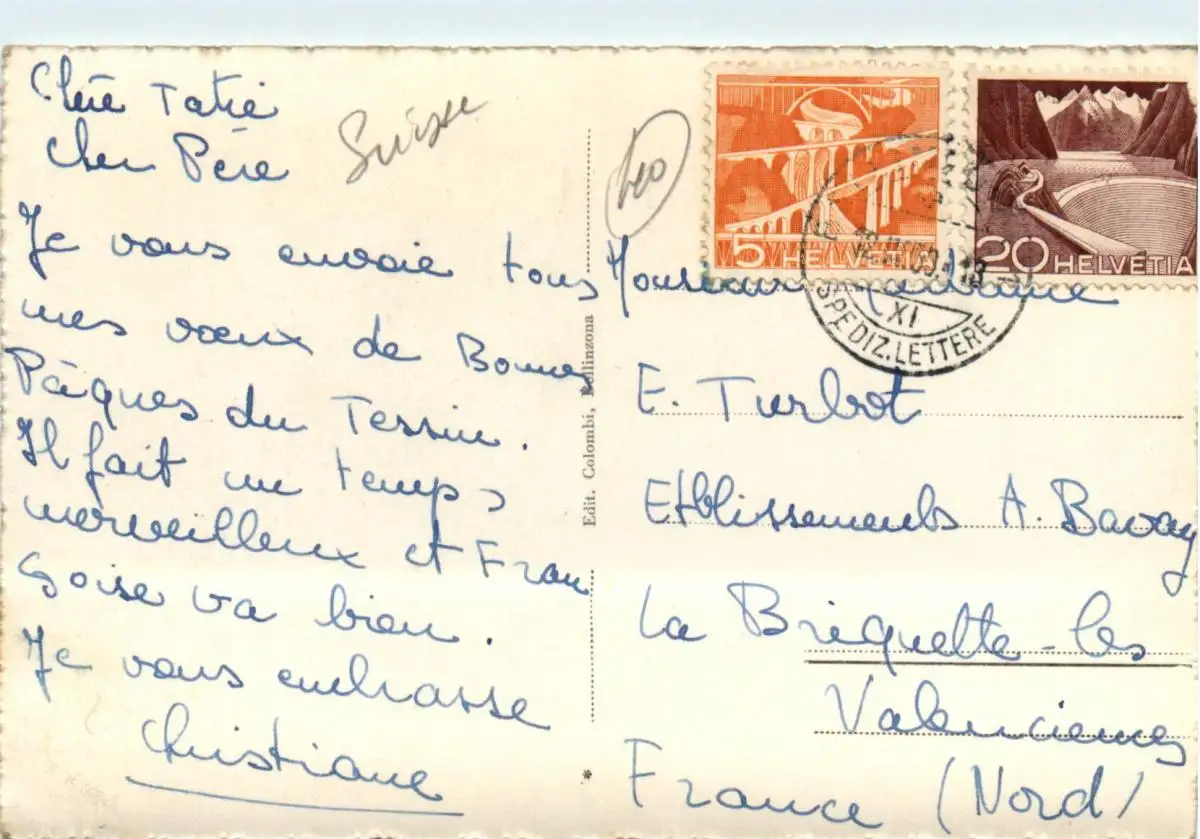 Chère Tatie
Cher Père
Je vous envoie tous
mes vœux de Bonnes
Pâques du Tessin.
Il fait un temps
merveilleux et Fran
çoise va bien.
Je vous embrasse
Christiane
Suisse
Edit. Colombi, Bellinzona
*
5 HELVETIA
20 HELVETIA
XI
SPEDIZ. LETTERE
Monsieur
E. Turbot
Etblissements A. Bavay
La Briquette-les
Valenciennes
France (Nord)